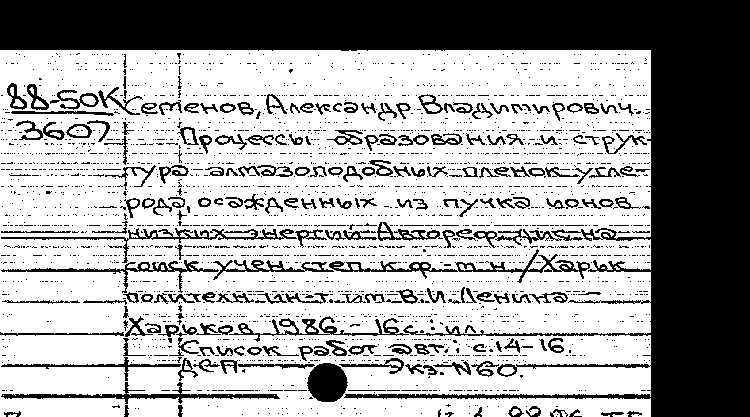 88-50К Семенов, Александр Владимирович.
3607
Процессы образования и струк-
тура алмазоподобных пленок угле-
рода, осажденных из пучка ионов
низких энергий: Автореф. дис. на
соиск. учен. степ. к. ф.-т. н. / Харьк.
политехн. ин-т. им. В.И. Ленина. -
Харьков, 1986. - 16 с.: ил.
Список работ авт.: с. 14-16.
Д.С.П. Экз. N60.